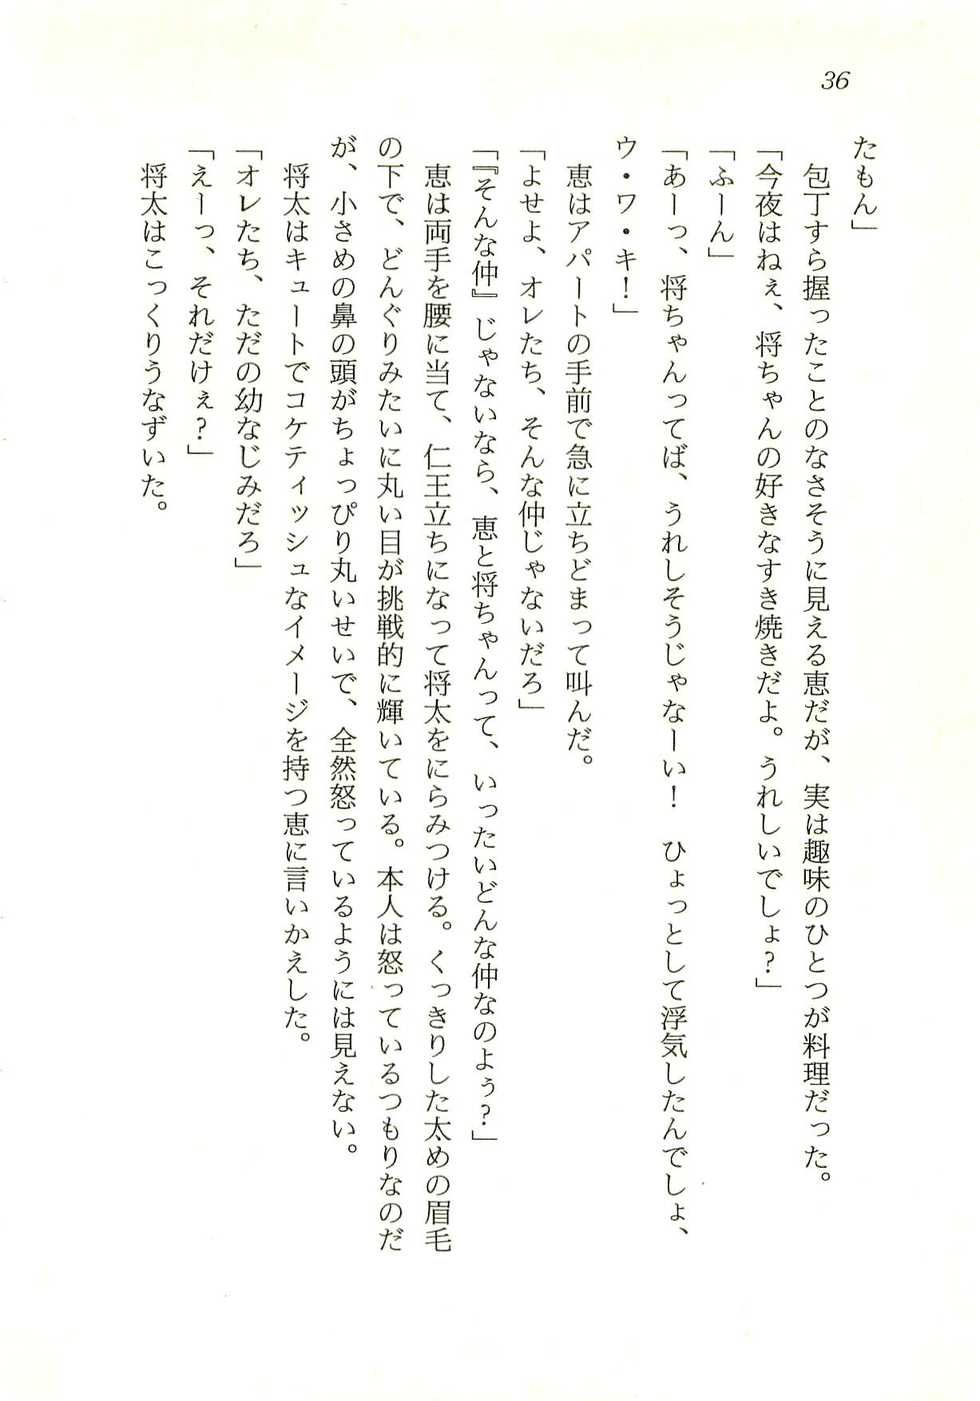 36
たもん」
　包丁すら握ったことのなさそうに見える恵だが、実は趣味のひとつが料理だった。
「今夜はねぇ、将ちゃんの好きなすき焼きだよ。うれしいでしょ？」
「ふーん」
「あーっ、将ちゃんってば、うれしそうじゃなーい！　ひょっとして浮気したんでしょ、
ウ・ワ・キ！」
　恵はアパートの手前で急に立ちどまって叫んだ。
「よせよ、オレたち、そんな仲じゃないだろ」
「『そんな仲』じゃないなら、恵と将ちゃんって、いったいどんな仲なのよぅ？」
　恵は両手を腰に当て、仁王立ちになって将太をにらみつける。くっきりした太めの眉毛
の下で、どんぐりみたいに丸い目が挑戦的に輝いている。本人は怒っているつもりなのだ
が、小さめの鼻の頭がちょっぴり丸いせいで、全然怒っているようには見えない。
　将太はキュートでコケティッシュなイメージを持つ恵に言いかえした。
「オレたち、ただの幼なじみだろ」
「えーっ、それだけぇ？」
　将太はこっくりうなずいた。